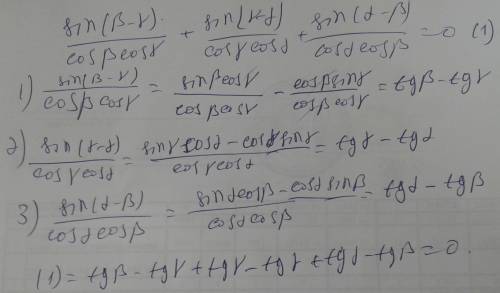 sin(β-γ)/cosβcosγ + sin(γ-α)/cosγcosα + sin(α-β)/cosαcosβ = 0 (1)
1) sin(β-γ)/cosβcosγ = sinβcosγ/cosβcosγ - cosβsinγ/cosβcosγ = tgβ - tgγ
2) sin(γ-α)/cosγcosα = sinγcosα - cosγsinα/cosγcosα = tgγ - tgα
3) sin(α-β)/cosαcosβ = sinαcosβ - cosαsinβ/cosαcosβ = tgα - tgβ
(1) = tgβ - tgγ + tgγ - tgα + tgα - tgβ = 0.